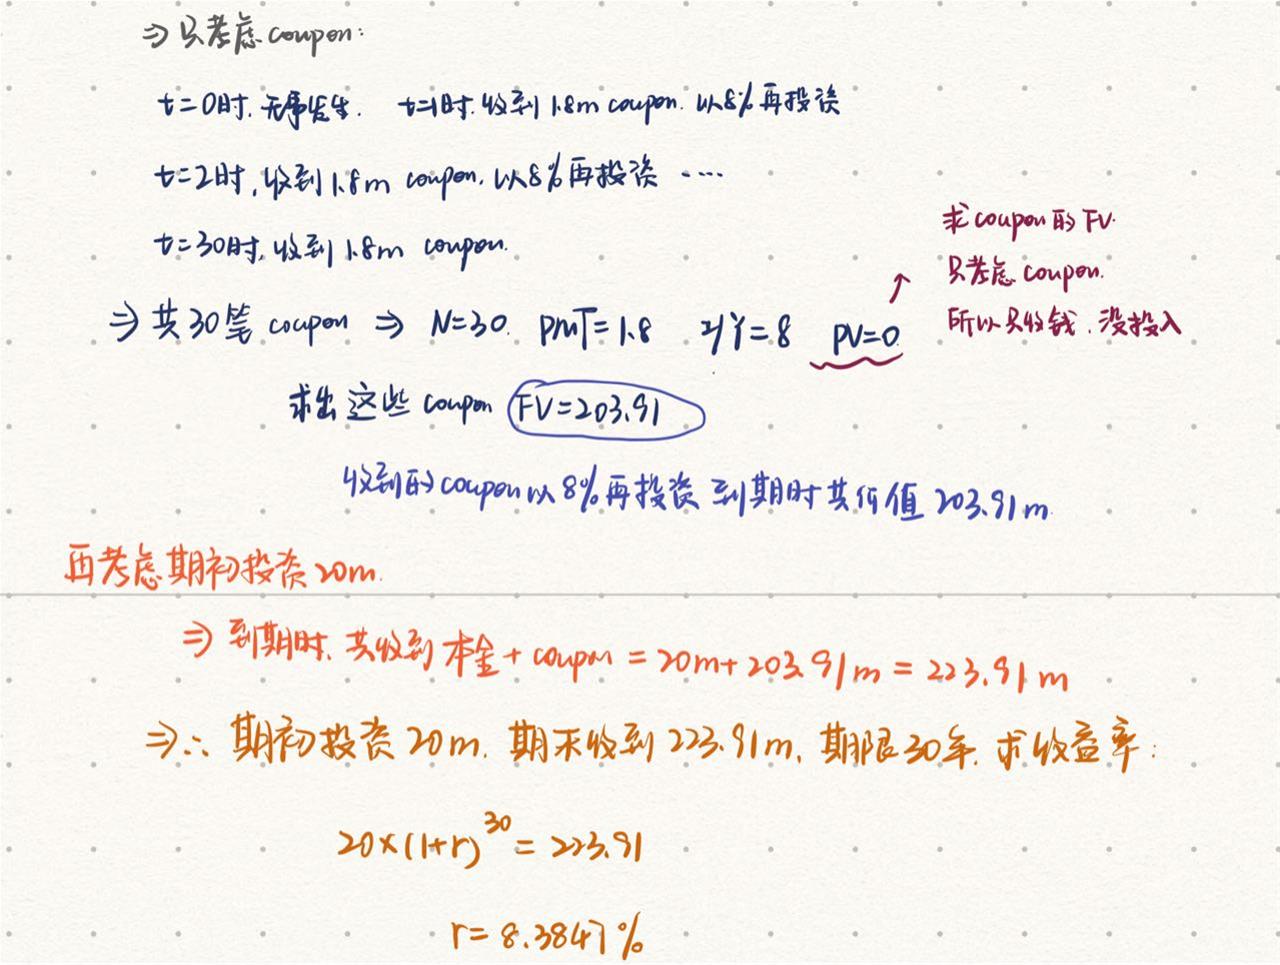 ⇒ 只考虑 coupon:
t=0时. 无事发生. t=1时. 收到 1.8m coupon. 以8%再投资
t=2时, 收到 1.8m coupon. 以8%再投资 ....
t=30时, 收到 1.8m coupon.
求coupon的 FV.
只考虑 coupon.
所以只收钱. 没投入
⇒ 共30笔 coupon ⇒ N=30. PMT=1.8 I/Y=8 PV=0.
求出 这些 coupon FV=203.91
收到的coupon以8%再投资 到期时共价值 203.91m
再考虑期初投资20m.
⇒ 到期时. 共收到 本金 + coupon = 20m + 203.91m = 223.91m
⇒∴ 期初投资20m. 期末收到 223.91m, 期限30年. 求收益率:
20×(1+r)^30 = 223.91
r= 8.3847%